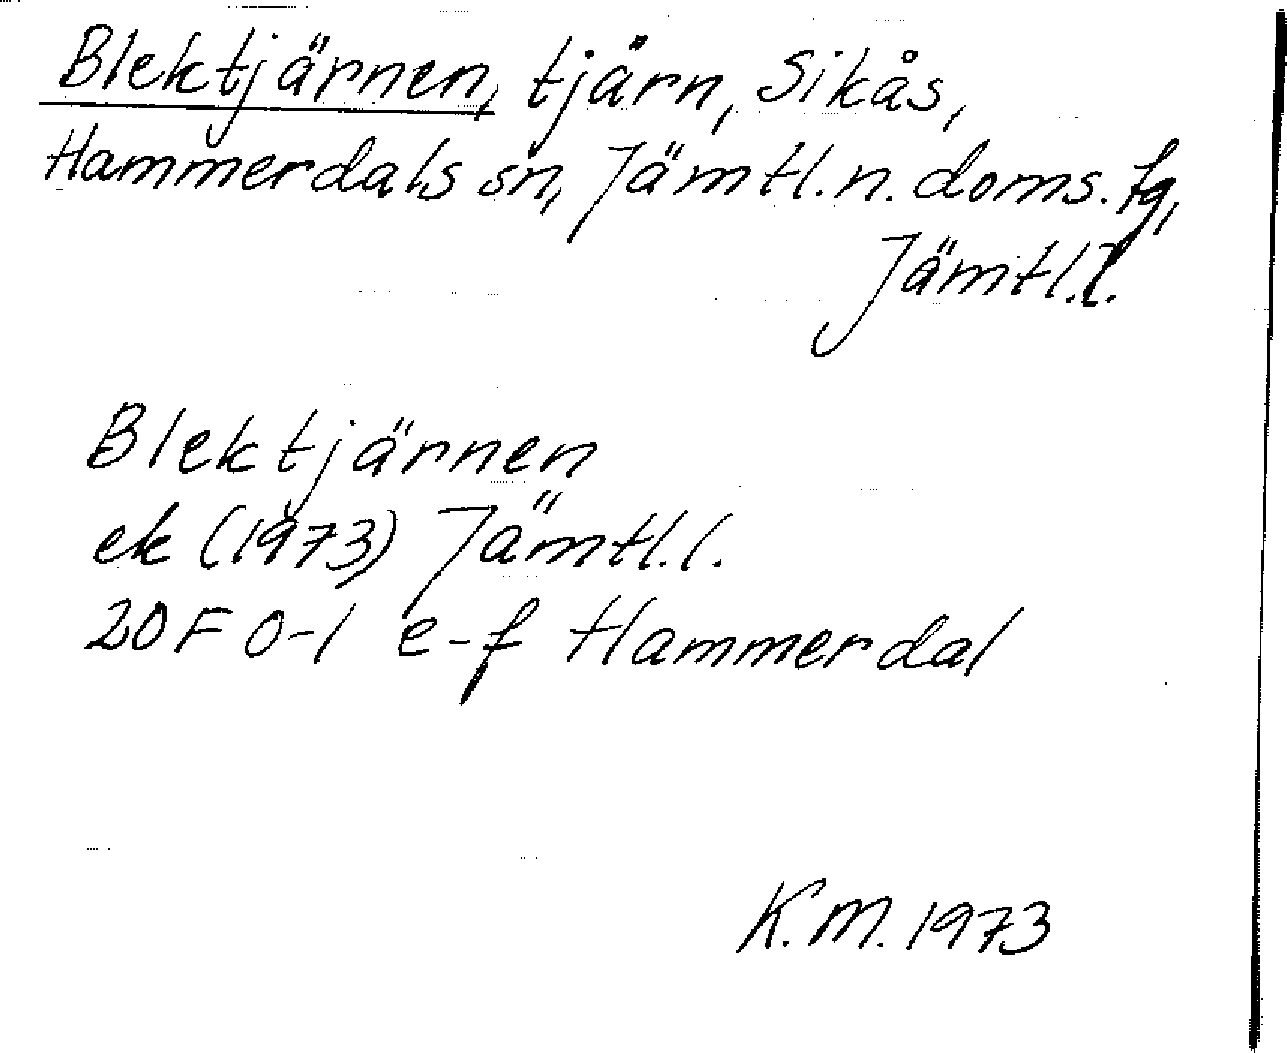 Blektjärnen, tjärn, Sikås,
Hammerdals sn, Jämtl. n. doms. fg,
Jämtl. l.
Blektjärnen
ek (1973) Jämtl. l.
20F 0-1 e-f Hammerdal
K.M. 1973